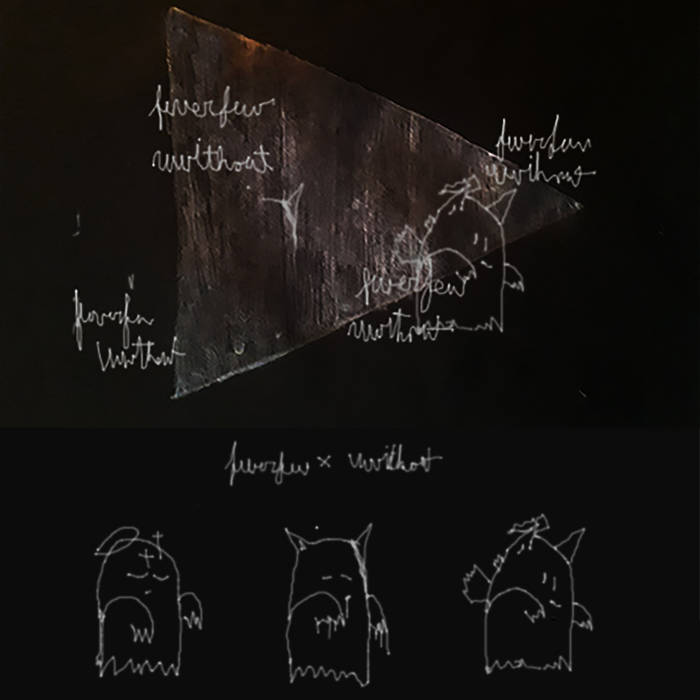 feverfew
uwithout
feverfew
uwithout
feverfew
uwithout
feverfew
uwithout
feverfew x uwithout